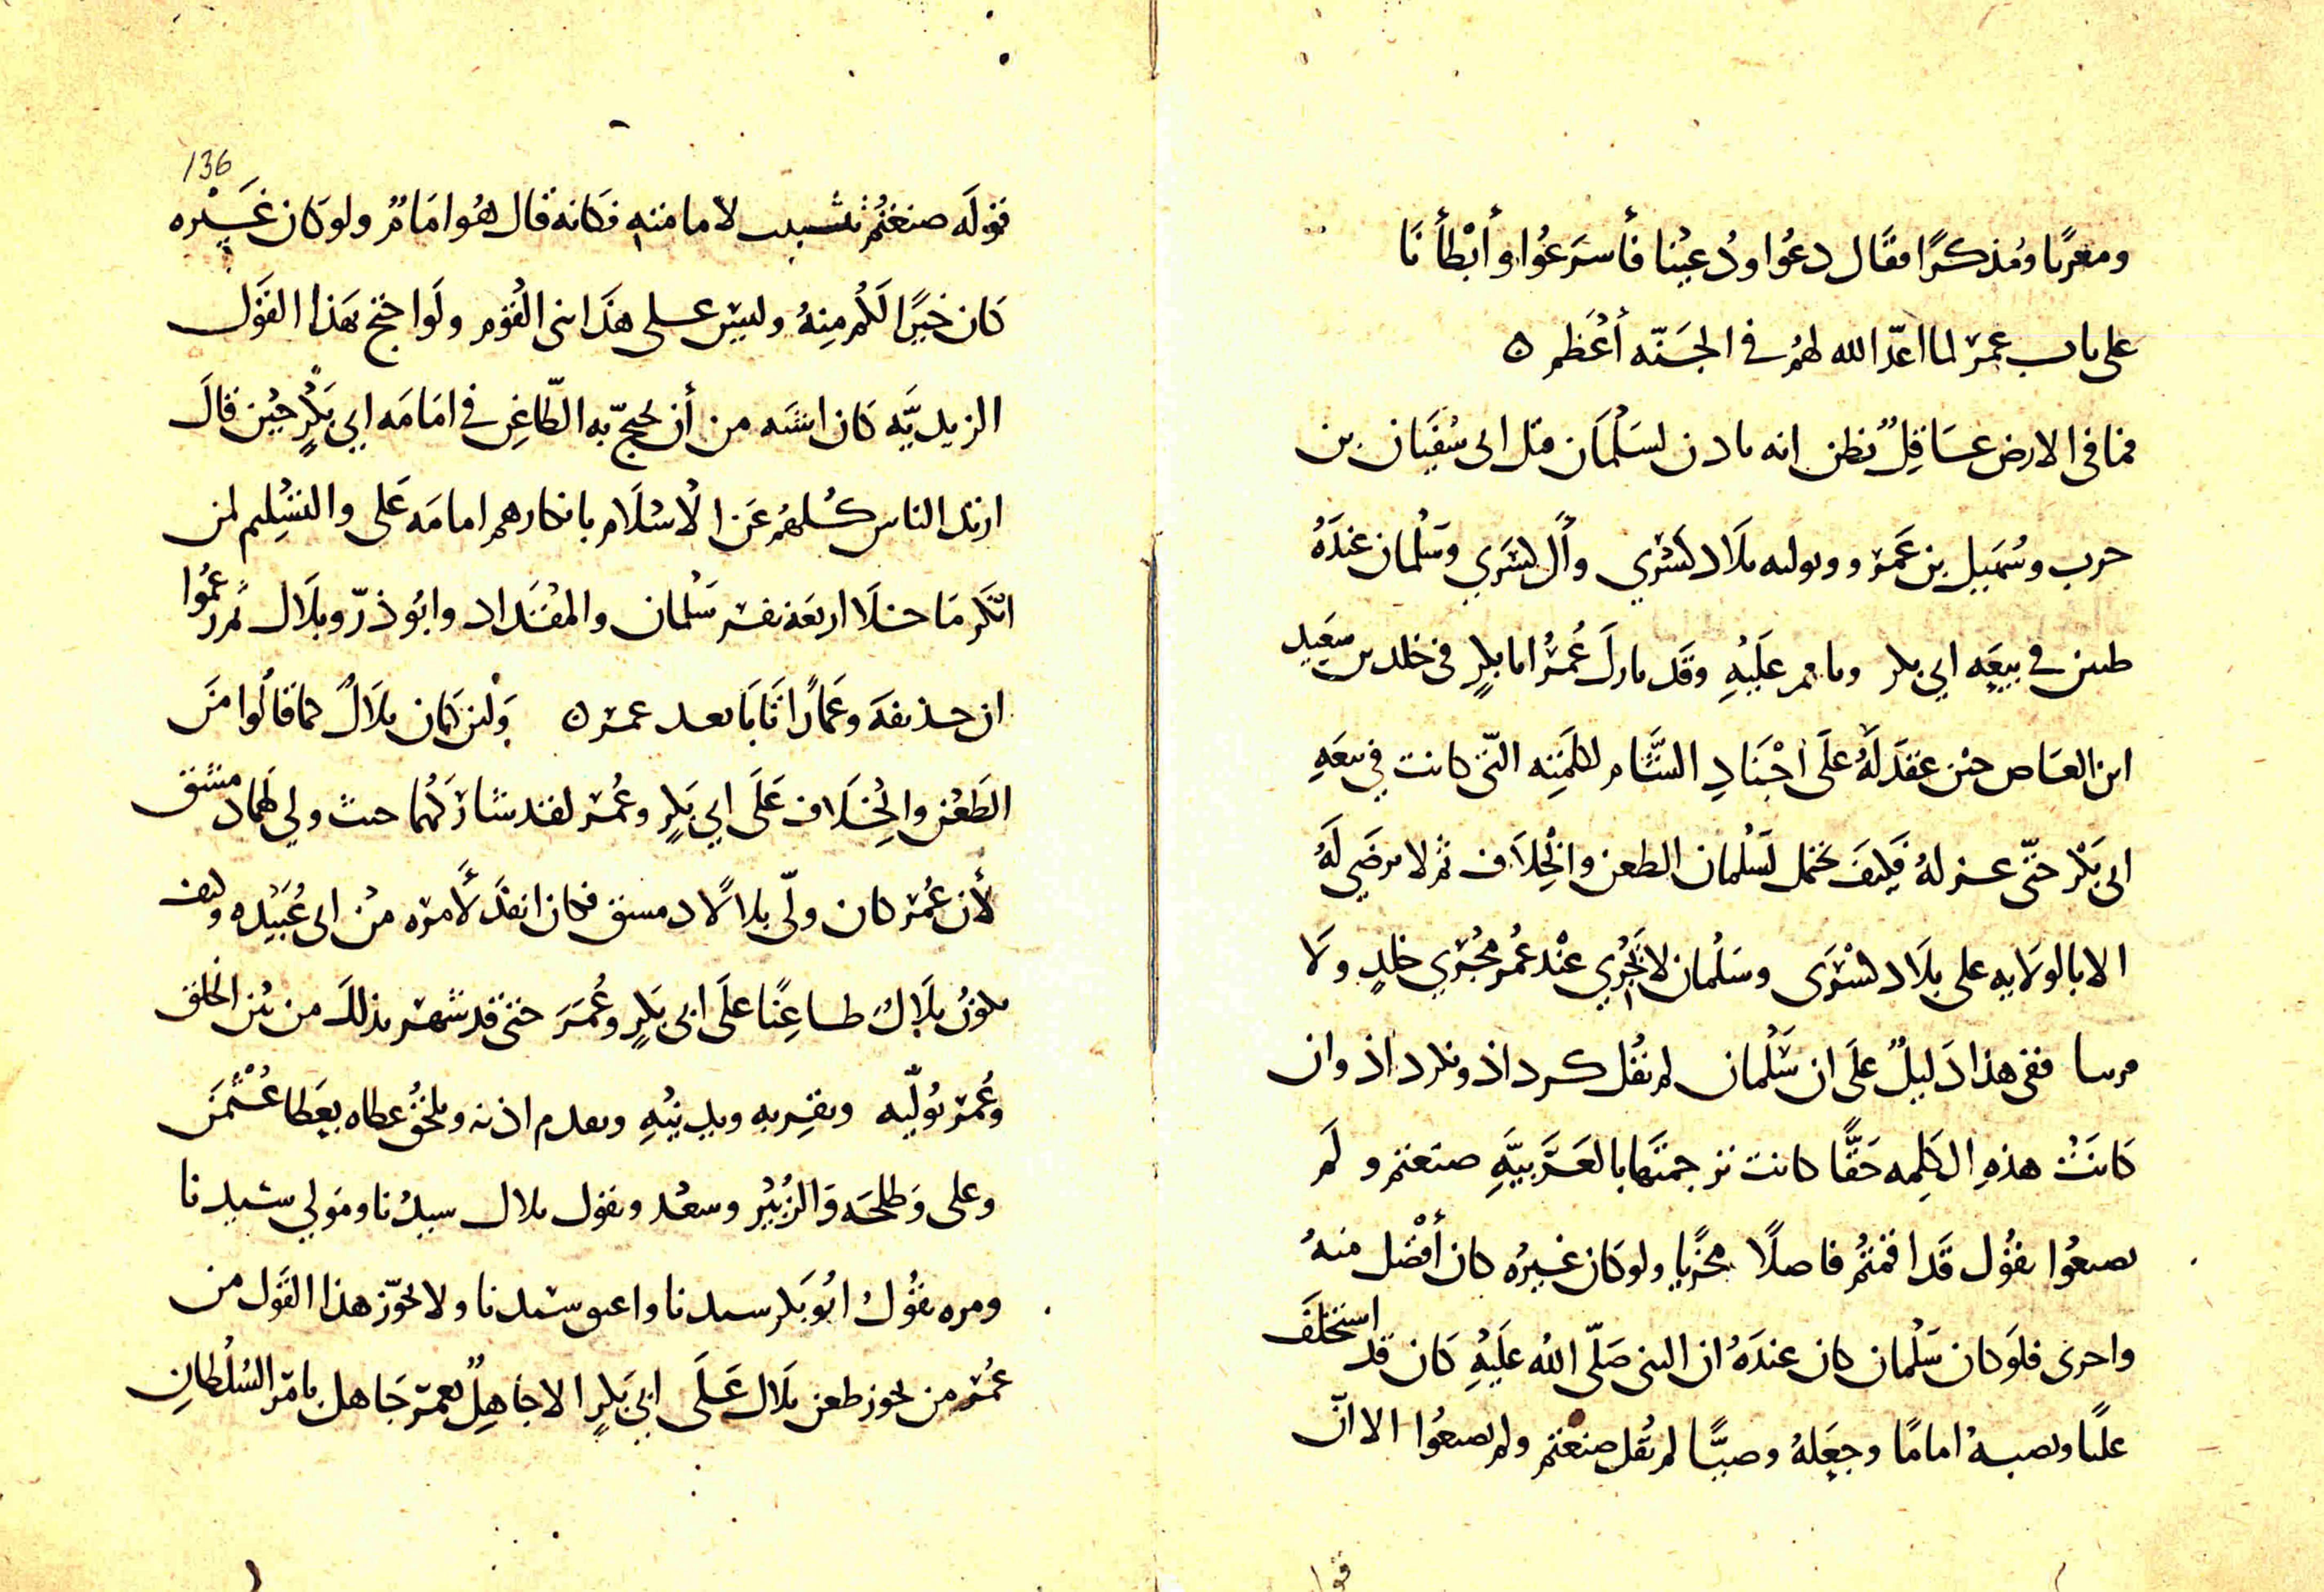 ومغربا ومُذكرًا فقال دعُوا ودُعِيْنا فأسرَعُوا وأبْطأنَا
على باب عمر لما اعدّ الله لهُم في الجَنّه أعْظم ه
فما في الارض عَاقِلٌ يظن انه بادن لسَلْمَان قبل ابى سُفيَان بن
حرب وسُهَيل بن عَمرو وبوليه بلاد كسْرَي وآل كسْرَي وسَلْمان عندَهُ
طعن في بيعَه ابي بكر وبامر عَلَيْهِ وقَد بارل عُمَرُ ابا بكرٍ فى خالد بن سَعِيدِ
ابن العَاص حين عقدَ لَهُ علَى أجْنَادِ الشَّام للكلمَتِه التي كانت في بيعَهِ
ابى بَكْر حتّى عزلهُ فكيفَ يحتمل لسَلْمان الطعن والخِلاَف ثم لا يرضَي لَهُ
الا بالولايه على بلَاد كسْرَى وسَلْمان لا يجْري عنْد عُمَر مجْرَي خالدٍ ولَا
قريبا ففى هذا دَليلٌ علَى ان سَلْمان لم يقُل كرداذ ونكرداذ وان
كَانَتْ هذهِ الكَلِمه حَقًّا كانت ترجمتَها بالعَرَبيَّهِ صنعتم ولَم
تصنعُوا يقُول قَد اقمتُم فاضلًا مجْزيا ولو كان غيرُه كان أفْضل منهُ
واحرى فلَو كان سَلْمان كان عندَهُ ان النبى صَلّى الله علَيْهِ كَان قد استخلَفَ
عليًا ونصبهُ امامًا وجعَلهُ وصيًّا لم يقُل صنعتم ولم تصنعُوا الا انّ
136
قولَه صنعتُم تثبيت لامامته فكانه قال هُو امَامٌ ولو كان غَيْره
كان خيرًا لكُم منِهُ وليسَ على هذَا بنى القَوْم ولَو احتج بهَذا القَوْل
الزيديَّه كان اشبه من أن يحتجّ به الطّاعِن في امَامَه ابي بَكْرٍ حيْن قالَ
ارتد الناس كُلهُم عَن الاسْلَام بانكارهم امامَه عَلى والتسْلِيم لمن
انكرَ مَا خلَا اربعَة نفر سَلْمان والمقْدَاد وابُو ذرّ وبلَال ثم زعمُوا
ان حذيفه وعَمارًا تَابَا بعد عمر ه ولئن كان بلَالٌ كما قالُوا منَ
الطَعْن والِخلَاف عَلَى ابي بَكرٍ وعُمر لقد شارَكَهُما حيث ولي لهُمَا دمشق
لأن عُمر كان ولّى بلالًا دمسق فكان انفذَ لأمره منْ ابى عُبَيْده وكيف
يكونُ بلَالُ طاعِنًا علَى ابى بَكرٍ وعُمَرَ حتى قد شهر بذلكَ من بيْن الخلق
وعُمر يُولّيه ويقرِبه ويدنيْهِ ويقدم اذنه ويلحقُ عطاه بعَطا عُثْمَنَ
وعلى وَطلحَه وَالزُبَيْر وسعْد ويقول بلال سيدُنا ومَولي سيدنا
ومره يقُولُ ابُو بَكر سيدنا واعتق سيدنا ولا يجوّز هذا القَول من
عُمَر من يجوز طعن بلَال عَلَى ابي بَكرٍ الا جاهِلٌ بعمرَ جَاهل بامر السُلْطانِ